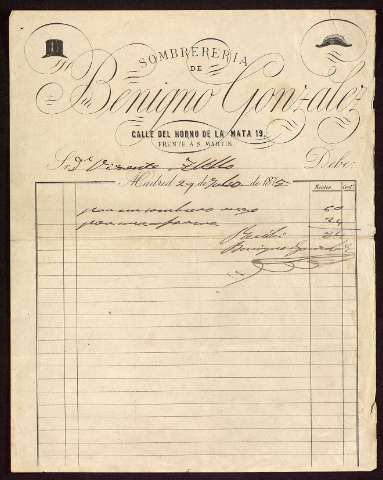 SOMBRERERIA
DE
Benigno Gonzalez
CALLE DEL HORNO DE LA MATA 19.
FRENTE A S. MARTIN.
Sr. Dn. Vicente Debe:
Madrid 29 de Julio de 187
Reales Cent.
por un sombrero 60
por una 24
Recibi 84
Benigno Gonzalez